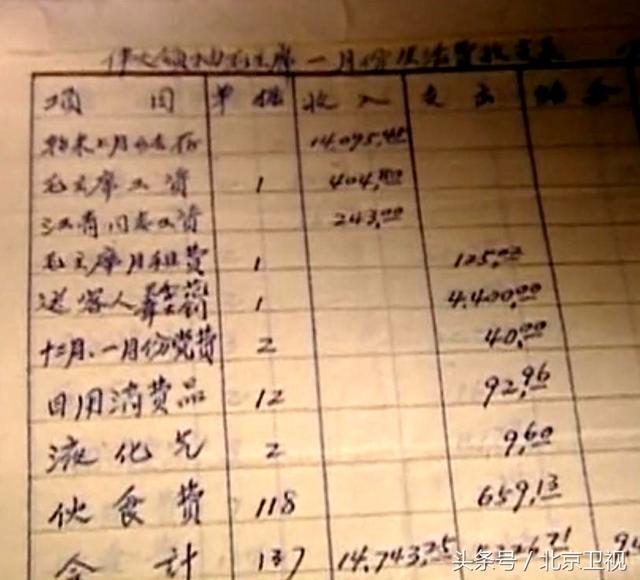 伟大领袖毛主席一月份生活费收支表
项目 单据 收入 支出 结余
14,095.45
毛主席工资 1 404.80
江青同志工资 243.00
毛主席房租费 1 125.02
送客人 1 4,400.00
十二月、一月份党费 2 40.00
日用消费品 12 92.96
液化气 2 9.60
伙食费 118 659.13
合计 137 14,743.25 5,326.71
头条号/北京卫视